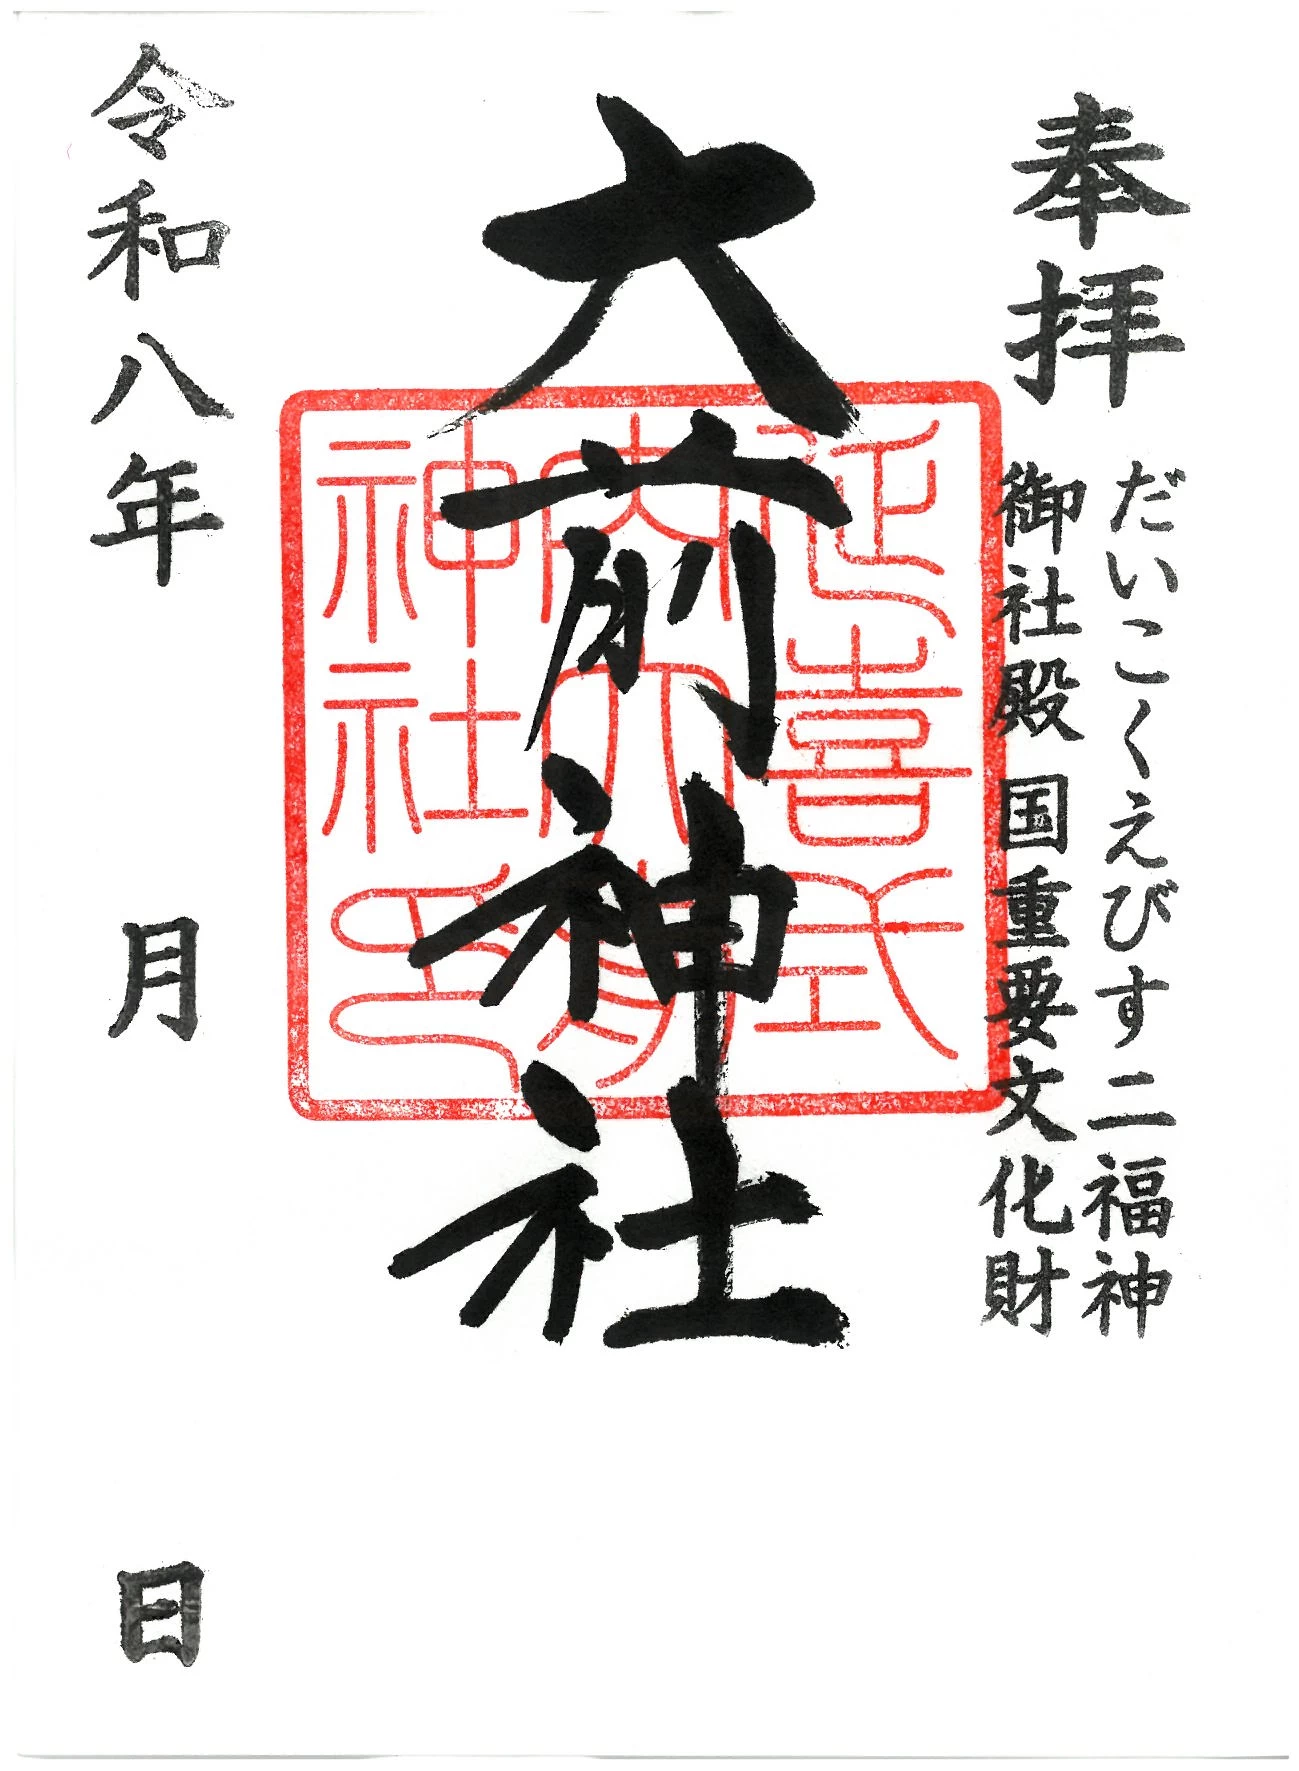 奉拝
だいこくえびす二福神
御社殿 国重要文化財
大前神社
延喜式
内大前
神社印
令和八年 月 日